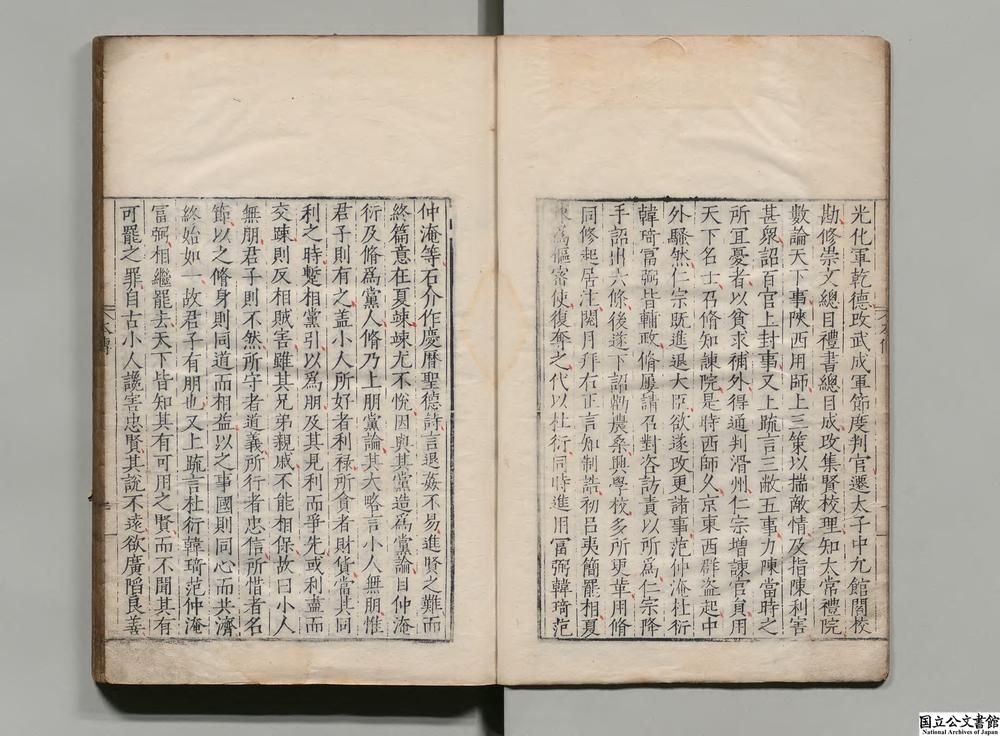 光化軍乾德改武成軍節度判官遷太子中允館閣校
勘修崇文總目禮書總目成改集賢校理知太常禮院
數論天下事陝西用師上三策以揣敵情及指陳利害
甚衆詔百官上封事又上䟽言三敝五事力陳當時之
所宜憂者以貧求補外得通判滑州仁宗增諫官員用
天下名士召脩知諫院是時西師久京東西群盜起中
外騷然仁宗既進退大臣欲遂改更諸事范仲淹杜衍
韓琦富弼皆輔政脩屢請召對咨訪責以所爲仁宗降
手詔出六條後遂下詔勸農桑興學校多所更革用脩
同修起居注閱月拜右正言知制誥初呂夷簡罷相夏
竦爲樞宻使復奪之代以杜衍同時進用富弼韓琦范
仲淹等石介作慶曆聖德詩言退姦不易進賢之難而
終篇意在夏竦竦尤不悅因與其黨造爲黨論目仲淹
衍及脩爲黨人脩乃上朋黨論其大略言小人無朋惟
君子則有之盖小人所好者利祿所貪者財貨當其同
利之時蹔相黨引以爲朋及其見利而爭先或利盡而
交踈則反相賊害雖其兄弟親戚不能相保故曰小人
無朋君子則不然所守者道義所行者忠信所惜者名
節以之脩身則同道而相益以之事國則同心而共濟
終始如一故君子有朋也又上䟽言杜衍韓琦范仲淹
富弼相繼罷去天下皆知其有可用之賢而不聞其有
可罷之罪自古小人讒害忠賢其說不遠欲廣陷良善
本傳
国立公文書館
National Archives of Japan